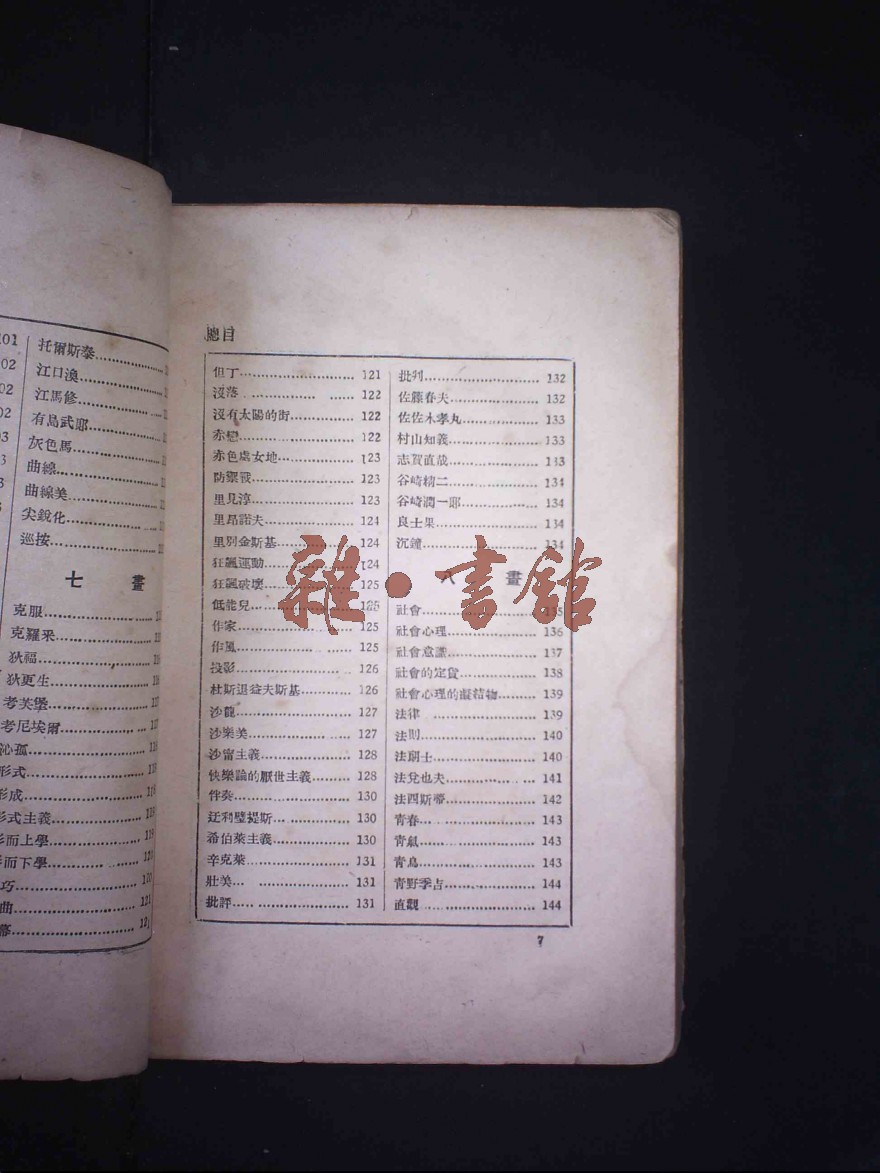 101
托爾斯泰
102
江口渙
102
江馬修
102
有島武郎
103
灰色馬
曲線
曲線美
尖銳化
巡按
七 畫
克服
克羅采
狄福
狄更生
考芙堡
考尼埃爾
沁孤
形式
形成
形式主義
形而上學
形而下學
巧 120
曲 121
幕 121
總目
但丁 121
沒落 122
沒有太陽的街 122
赤戀 122
赤色處女地 123
防禦戰 123
里見淳 123
里昂諾夫 124
里別金斯基 124
狂飆運動 124
狂飆破壞 125
低能兒 125
作家 125
作風 125
投影 126
杜斯退益夫斯基 126
沙龍 127
沙樂美 127
沙甯主義 128
快樂論的厭世主義 128
伴奏 130
廷利璧提斯 130
希伯萊主義 130
辛克萊 131
壯美 131
批評 131
批判 132
佐藤春夫 132
佐佐木孝丸 133
村山知義 133
志賀直哉 133
谷崎精二 134
谷崎潤一郎 134
良士果 134
沉鐘 134
八 畫
社會 135
社會心理 136
社會意識 137
社會的定貨 138
社會心理的凝結物 139
法律 139
法則 140
法朗士 140
法兌也夫 141
法西斯蒂 142
青春 143
青氣 143
青鳥 143
青野季吉 144
直觀 144
7
雜·書館